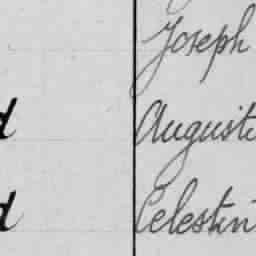 Joseph
d Auguste
d Celestin